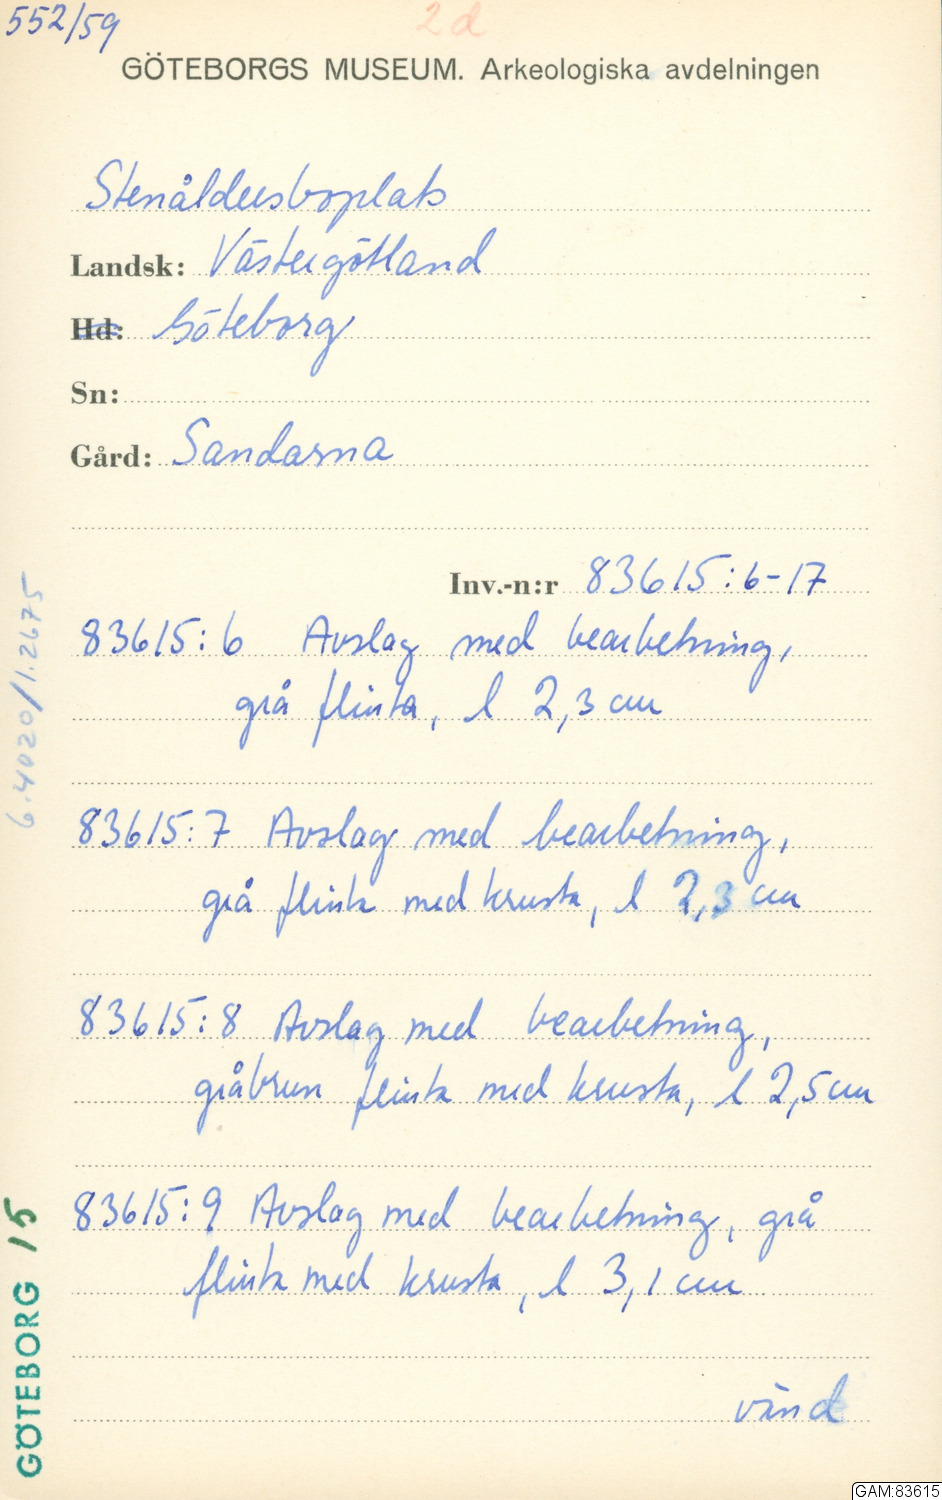 552/59
2d
GÖTEBORGS MUSEUM. Arkeologiska avdelningen
Stenåldersboplats
Landsk: Västergötland
Hd: Göteborg
Sn:
Gård: Sandarna
Inv.-n:r 83615:6-17
83615:6 Avslag med bearbetning,
grå flinta, l 2,3 cm
83615:7 Avslag med bearbetning,
grå flinta med krusta, l 2,3 cm
83615:8 Avslag med bearbetning,
gråbrun flinta med krusta, l 2,5 cm
83615:9 Avslag med bearbetning, grå
flinta med krusta, l 3,1 cm
vänd
6.4020/1.2675
GÖTEBORG 15
GAM:83615